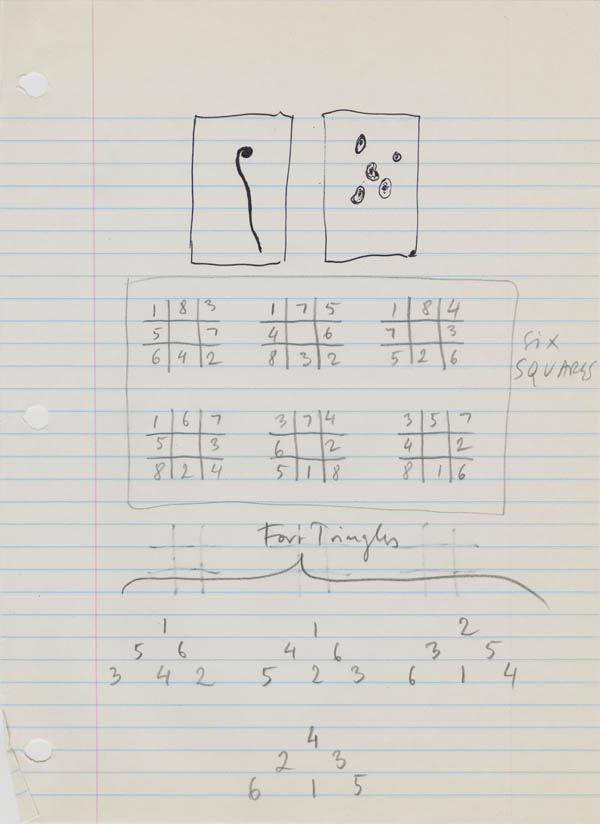 1 8 3 1 7 5 1 8 4
5 7 4 6 7 3
6 4 2 8 3 2 5 2 6
Six
SQUARES
1 6 7 3 7 4 3 5 7
5 3 6 2 4 2
8 2 4 5 1 8 8 1 6
Four Tringles
1 1 2
5 6 4 6 3 5
3 4 2 5 2 3 6 1 4
4
2 3
6 1 5